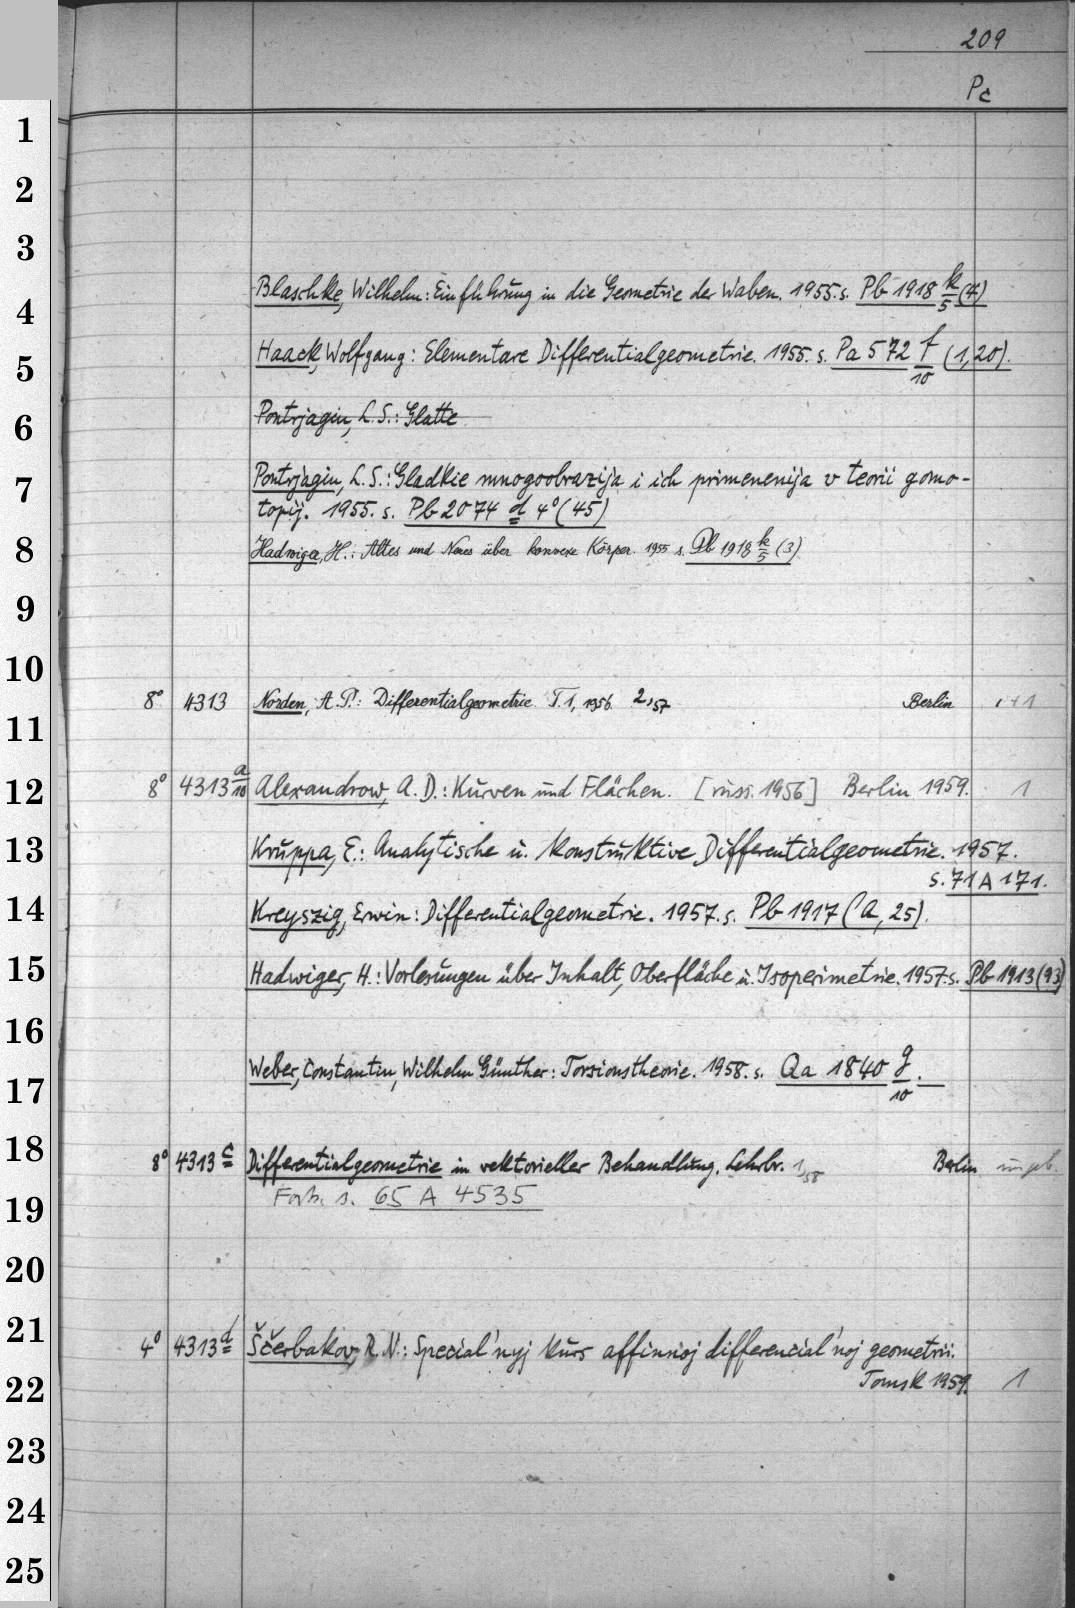 209
Pc
1
2
3
4 Blaschke, Wilhelm: Einführung in die Geometrie der Waben. 1955. s. Pb 1918 k/5 (4)
5 Haack, Wolfgang: Elementare Differentialgeometrie. 1955. s. Pa 572 f/10 (1,20).
6 Pontrjagin, L. S.: Glatte
7 Pontrjagin, L. S.: Gladkie mnogoobrazija i ich primenenija v teorii gomo-
topij. 1955. s. Pb 2074 d 4° (45)
8 Hadwiger, H.: Altes und Neues über konvexe Körper. 1955 s. Pb 1918 k/5 (3)
9
10
8° 4313 Norden, A. P.: Differentialgeometrie T. 1, 1956. 2,57 Berlin 1+1
11
12 8° 4313 a/10 Alexandrow, A. D.: Kurven und Flächen. [russ. 1956] Berlin 1959. 1
13 Kruppa, E.: Analytische u. konstruktive Differentialgeometrie. 1957.
s. 71 A 171.
14 Kreyszig, Erwin: Differentialgeometrie. 1957. s. Pb 1917 (A, 25).
15 Hadwiger, H.: Vorlesungen über Inhalt, Oberfläche u. Isoperimetrie. 1957. s. Pb 1913 (93)
16
17 Weber, Constantin, Wilhelm Günther: Torsionstheorie. 1958. s. Qa 1840 g/10.
18 8° 4313 c Differentialgeometrie in vektorieller Behandlung. Lehrbr. 1,58 Berlin ungeb.
19 Forts. s. 65 A 4535
20
21 4° 4313 d Ščerbakov, R. N.: Special'nyj kurs affinnoj differencial'noj geometrii.
22 Tomsk 1959. 1
23
24
25